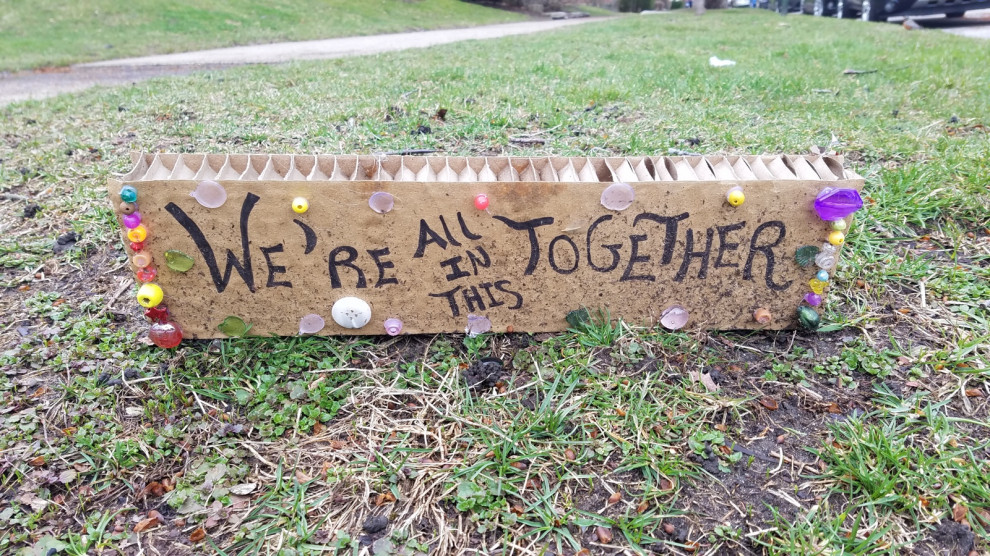 We're All In This Together